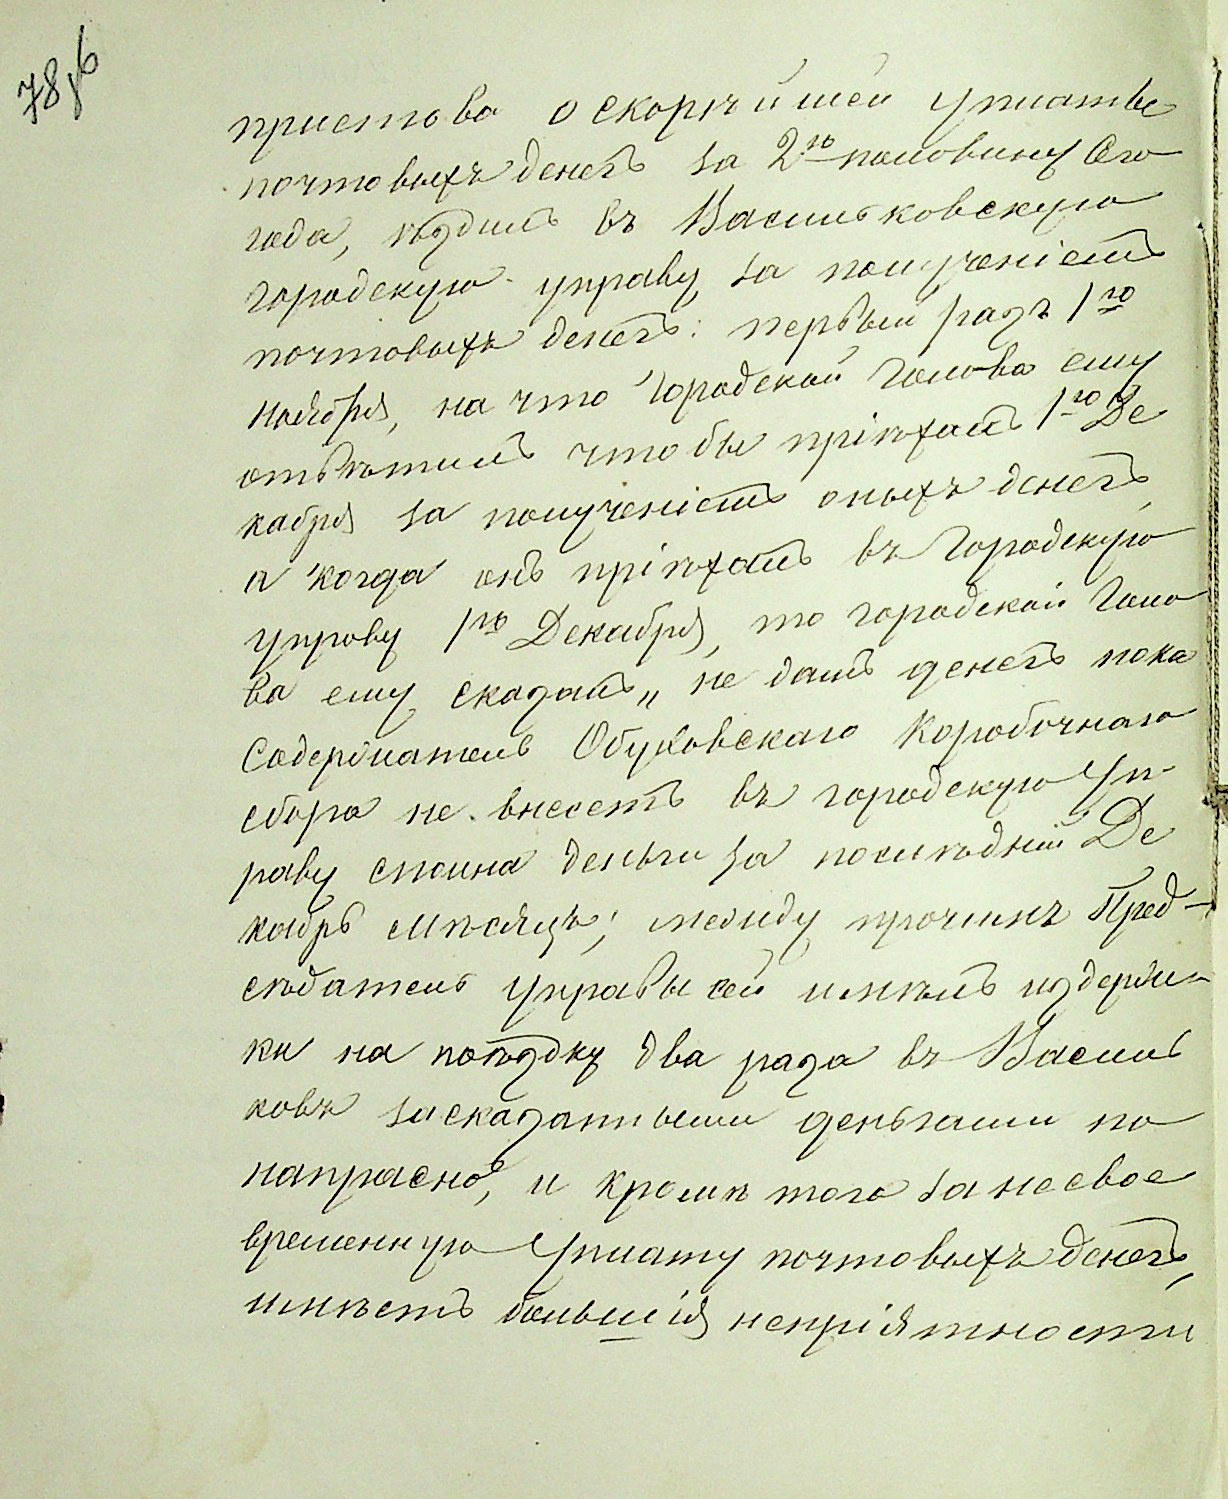 78об
пристова о скорѣйшей уплатѣ
почтовыхъ денегъ за 2ю половину сего
года, ѣздилъ въ Васильковскую
городскую управу за полученіемъ
почтовыхъ денегъ: первый разъ 1го
Ноября, на что городской голова ему
отвѣтилъ что бы пріѣхалъ 1го Де
кабря за полученіемъ оныхъ денегъ,
а когда онъ пріѣхалъ въ городскую
управу 1го Декабря, то городской голо
ва ему сказалъ „ не дамъ денегъ пока
содержатель Обуховскаго коробочнаго
сбора не внесетъ въ городскую Уп
раву сполна деньги за послѣдній Де
кабрь мѣсяцъ; между прочимъ Пред-
сѣдатель управы сей имѣлъ издерж-
ки на поѣздку два раза въ Василь
ковъ за сказанными деньгами по
напрасно, и кромѣ того за не свое
временную Уплату почтовыхъ денегъ,
имѣетъ большія непріятности